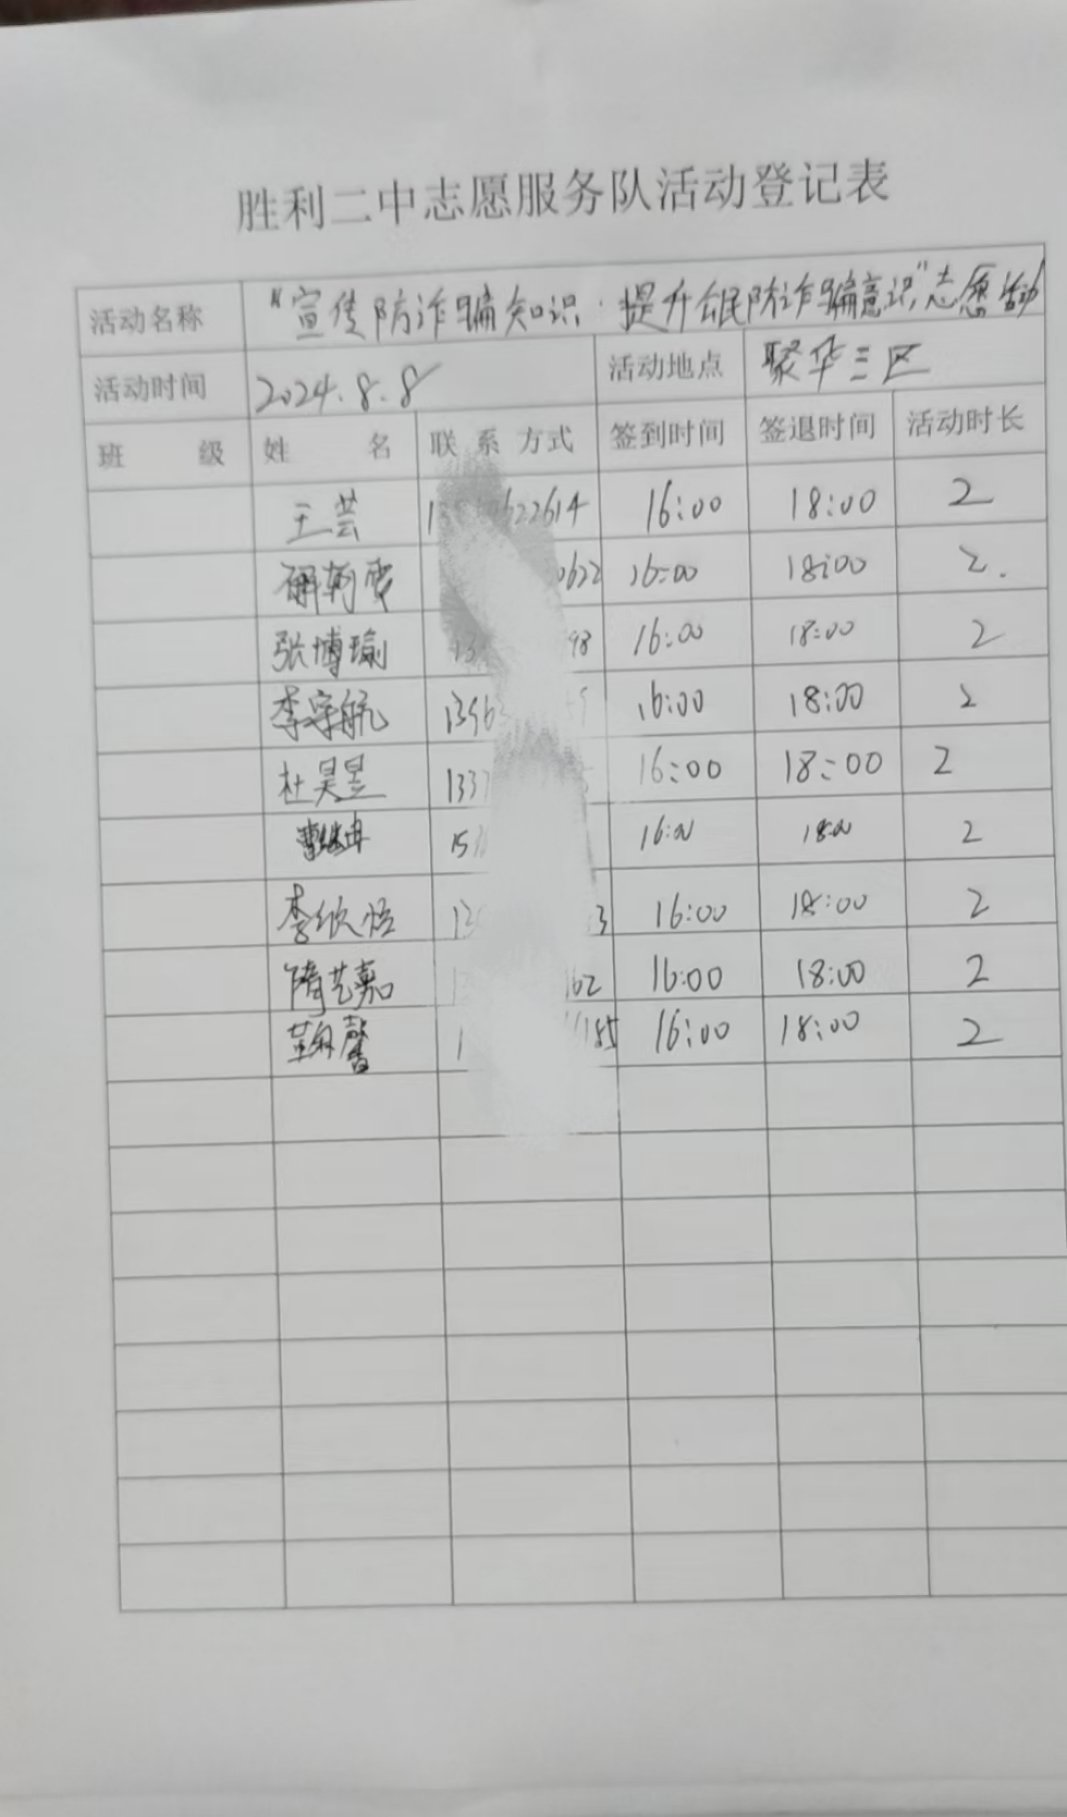 胜利二中志愿服务队活动登记表
活动名称 "宣传防诈骗知识·提升全民防诈骗意识"志愿活动
活动时间 2024.8.8 活动地点 聚华三区
班 级 姓 名 联系方式 签到时间 签退时间 活动时长
王芸 622614 16:00 18:00 2
0622 16:00 18:00 2.
张博瑜 98 16:00 18:00 2
李宇航 1396 16:00 18:00 2
杜昊昱 1337 16:00 18:00 2
15 16:00 18:00 2
李欣恬 3 16:00 18:00 2
隋艺嘉 162 16:00 18:00 2
185 16:00 18:00 2